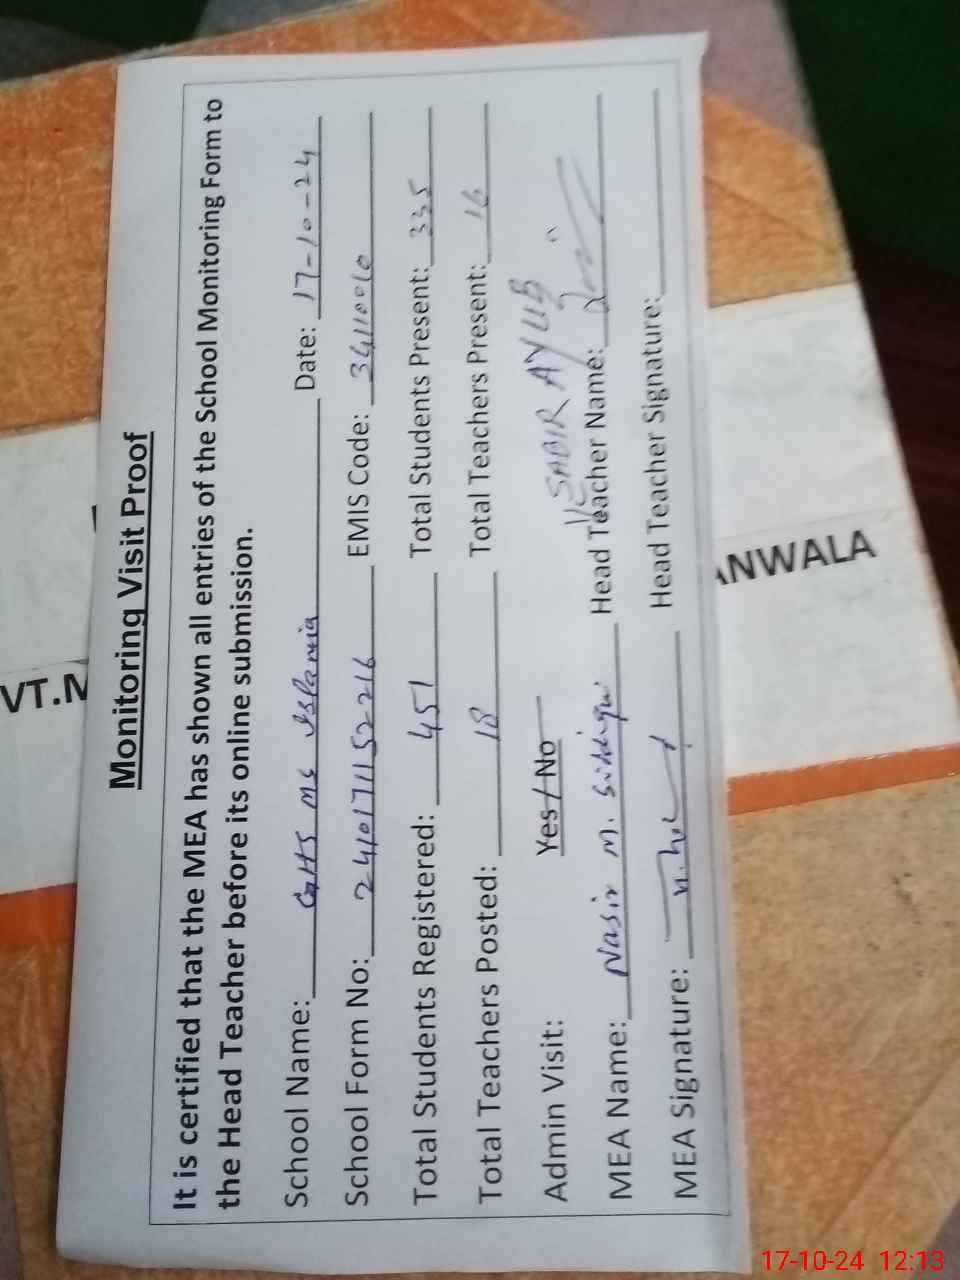 Monitoring Visit Proof
It is certified that the MEA has shown all entries of the School Monitoring Form to
the Head Teacher before its online submission.
School Name: GHS MC Islamia Date: 17-10-24
School Form No: 2410171152216 EMIS Code: 34110010
Total Students Registered: 451 Total Students Present: 335
Total Teachers Posted: 18 Total Teachers Present: 16
Admin Visit: Yes / No
SABIR AYUB
MEA Name: Nasir M. Siddiqui Head Teacher Name:
MEA Signature: Head Teacher Signature:
VT.M
ANWALA
17-10-24 12:13